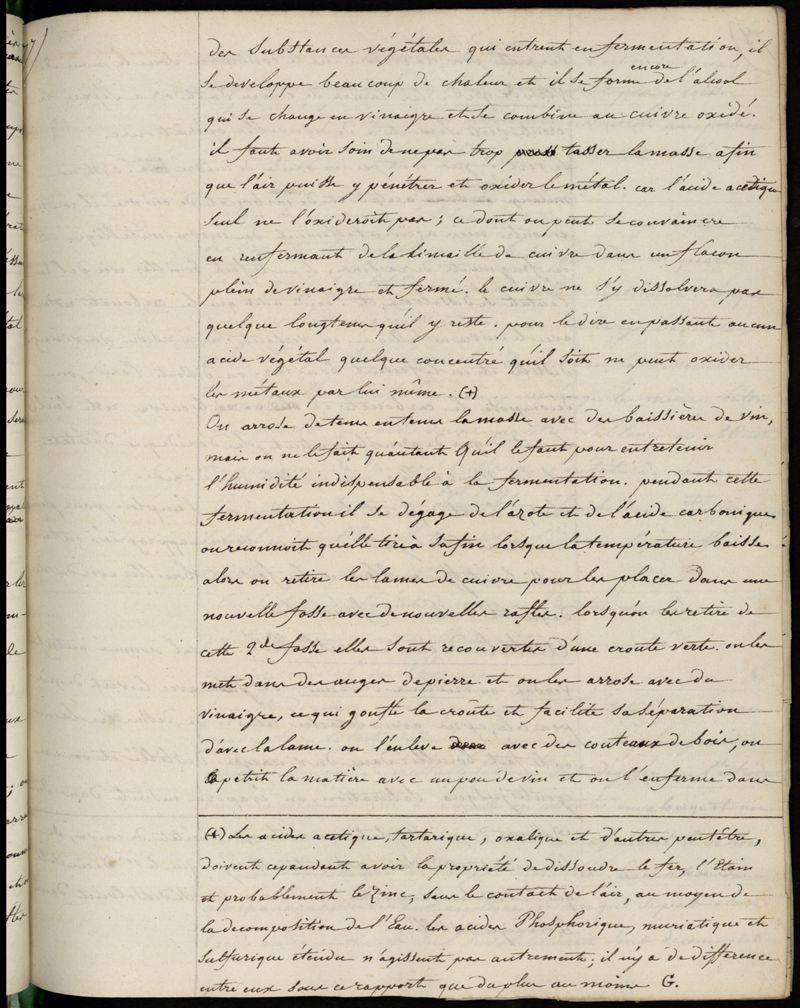 7)
des substances végétales qui entrent en fermentation, il
se developpe beaucoup de chaleur et il se forme encore de l'alcool
qui se change en vinaigre et se combine au cuivre oxidé.
il faut avoir soin de ne pas trop tasser la masse afin
que l'air puisse y pénétrer et oxider le métal. car l'acide acétique
seul ne l'oxideroit pas ; ce dont on peut se convaincre
en renfermant de la limaille de cuivre dans un flacon
plein de vinaigre et fermé. le cuivre ne s'y dissolvera pas
quelque longtems qu'il y reste. pour le dire en passant aucun
acide végétal quelque concentré qu'il soit ne peut oxider
les métaux par lui même. (+)
On arrose de tems en tems la masse avec des baissières de vin,
mais on ne le fait qu'autant qu'il le faut pour entretenir
l'humidité indispensable à la fermentation. pendant cette
fermentation il se dégage de l'azote et de l'acide carbonique
on reconnoit qu'elle tire à sa fin lorsque la température baisse
alors on retire les lames de cuivre pour les placer dans une
nouvelle fosse avec de nouvelles rafles. lorsqu'on les retire de
cette 2de fosse elles sont recouvertes d'une croute verte. on les
met dans des auges de pierre et on les arrose avec du
vinaigre, ce qui gonfle la croûte et facilite sa séparation
d'avec la lame. on l'enleve avec des couteaux de bois, on
petrit la matière avec un peu de vin et on l'enferme dans
(+) Les acides acetique, tartarique, oxalique et d'autres peutêtre,
doivent cependant avoir la propriété de dissoudre le fer, l'Etain
et probablement le Zinc, sans le contact de l'air, au moyen de
la decomposition de l'Eau. les acides Phosphorique, muriatique et
sulfurique étendu n'agissent pas autrement ; il n'y a de difference
entre eux sous ce rapport que du plus au moins G.